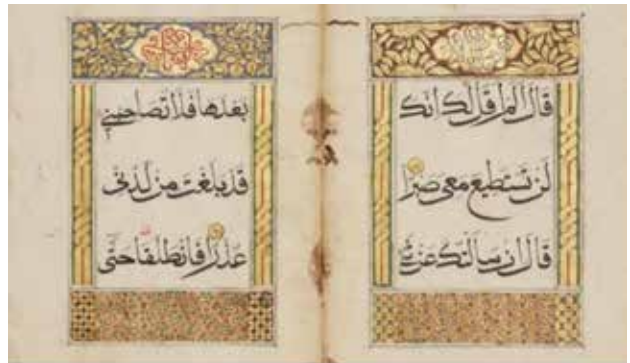 قال الم اقل لك انك
لن تستطيع معي صبرا
قال ان سالتك عن شي
بعدها فلا تصاحبني
قد بلغت من لدني
عذرا فانطلقا حتى